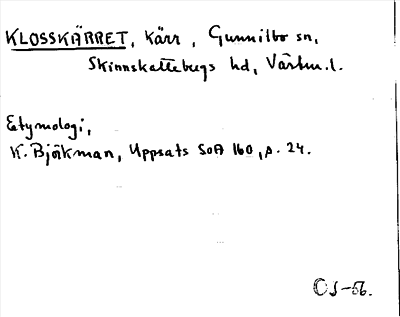 KLOSSKÄRRET, kärr, Gunnilbo sn,
Skinnskattebergs hd, Västm. l.
Etymologi,
K. Björkman, Uppsats SOÄ 160, s. 24.
OJ-56.